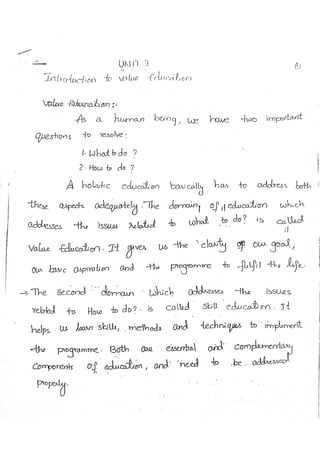 UNIT-I
Introduction to value Education
Value Education:-
As a human being, we have two important
questions to resolve:
1. What to do ?
2. How to do ?
A holistic education basically has to address both
these aspects adequately. The domain of education which
addresses the issues related to what to do? is called
Value Education. It gives us the clarity of our goal,
our basic aspiration and the programme to fulfil the life.
→ The second domain which addresses the issues
related to How to do? is called skill education. It
helps us learn skills, methods and techniques to implement
the programme. Both are essential and complementary
components of education, and need to be addressed
properly.